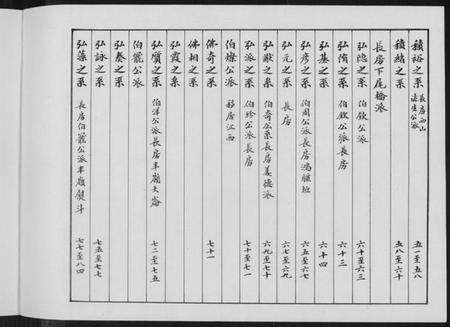 積裕之系 長房西山 五一至五八
積緒之系 五八至六十
長房下尾樓派
弘隱之系 伯欽公派 六十至六三
弘濱之系 伯欽公派長房 六十三
弘基之系 六十四
弘彥之系 伯周公派長房鴻臚垃 六五至六七
弘元之系 長房 六七至六九
弘猷之系 伯奇公系長房美德派 六九至七十
弘派之系 伯珍公派長房 七十至七一
伯燦公派 移居江西
佛奇之系 七十一
佛相之系
弘霞之系
弘廣之系 伯洋公派長房半嶺大崙 七二至七五
伯寵公派
弘奏之系
弘詠之系 七五至七七
弘藻之系 長房伯寵公派半嶺熨斗 七七至八四